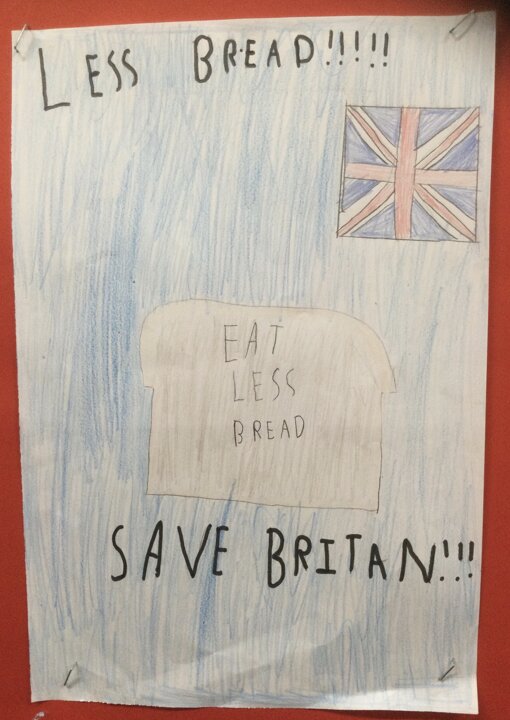 LESS BREAD!!!!!
EAT
LESS
BREAD
SAVE BRITAN!!!